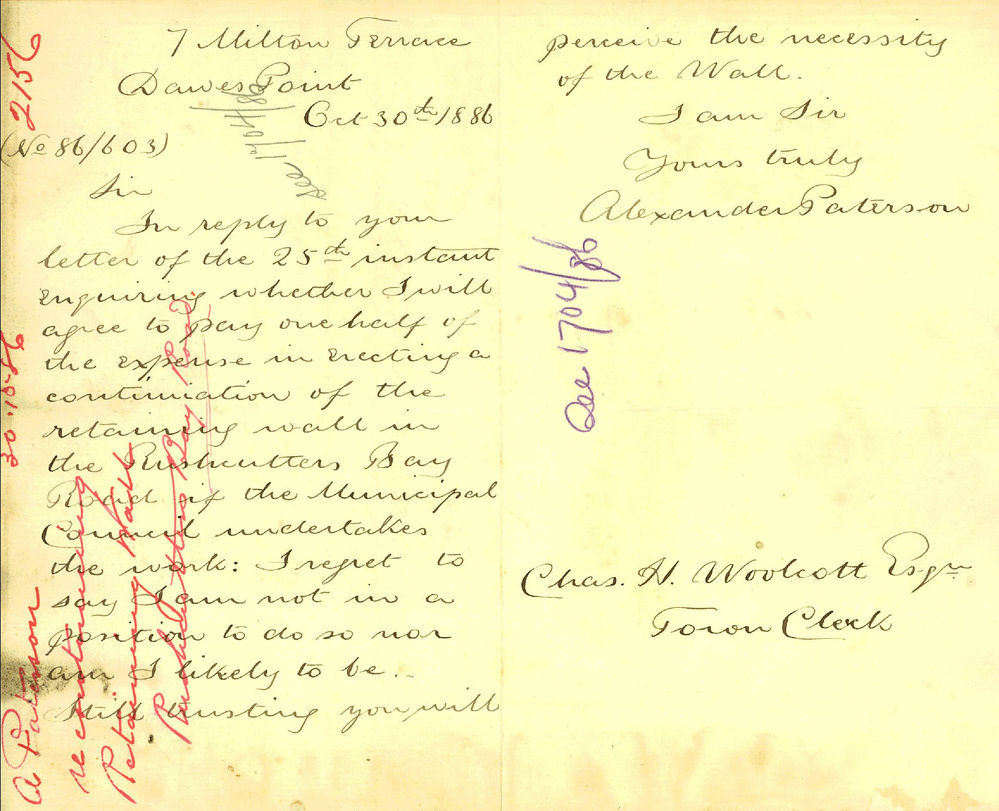 7 Milton Terrace
Dawes Point
Oct 30th 1886
(No 86/603)
Sir
In reply to your
letter of the 25th instant
enquiring whether I will
agree to pay one half of
the expense in erecting a
continuation of the
retaining wall in
the Rushcutters Bay
Road if the Municipal
Council undertakes
the work: I regret to
say I am not in a
position to do so nor
am I likely to be.
Still trusting you will
perceive the necessity
of the Wall.
I am Sir
Yours truly
Alexander Paterson
Chas. H. Woolcott Esqre
Town Clerk
See 1704/86
2156
30.10.86
A Paterson
re continuing
Retaining Wall
Rushcutters Bay Road.